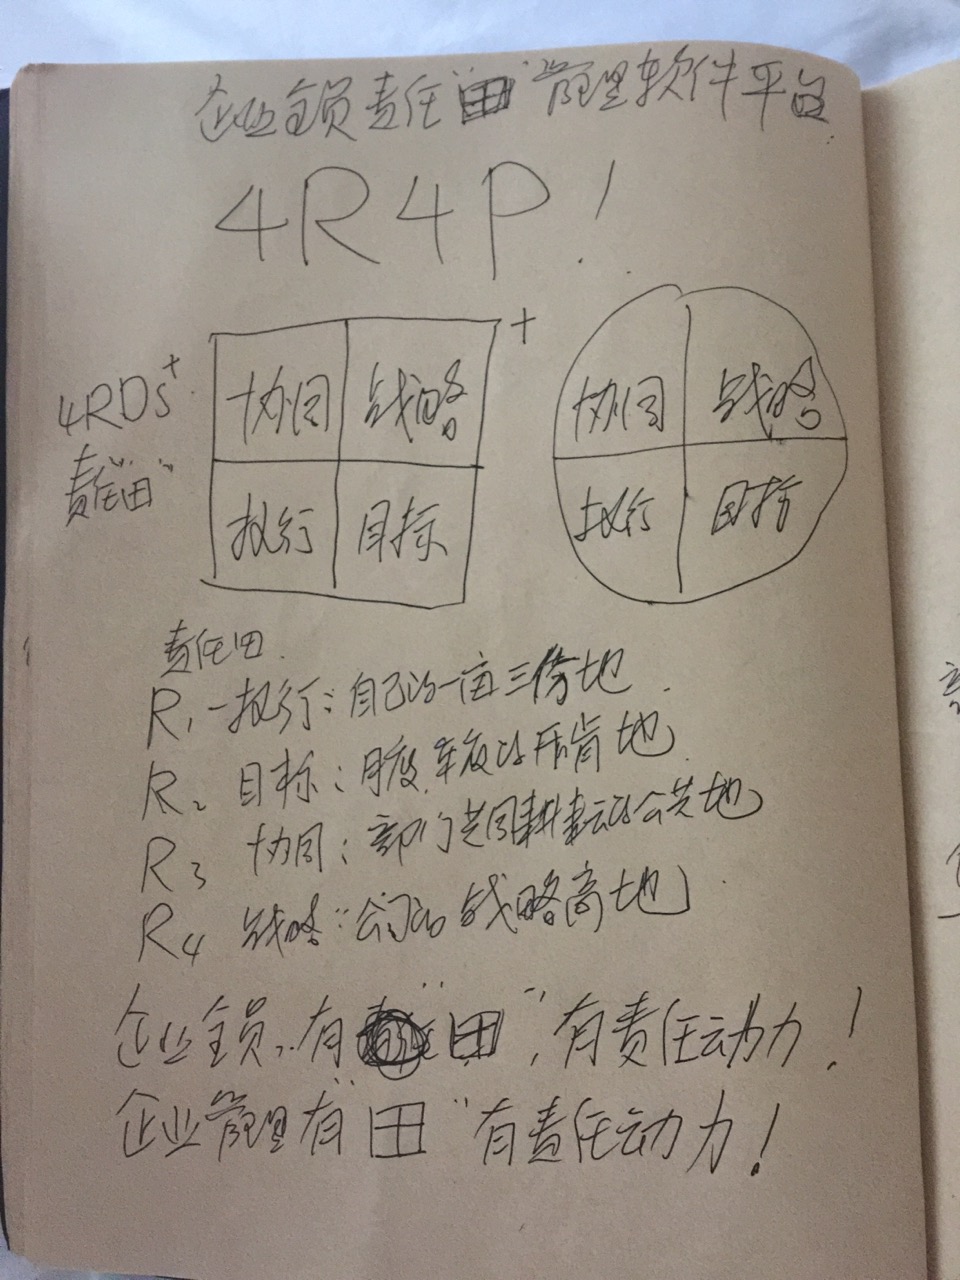 企业全员责任"田"管理软件平台
4R4P!
4RDS+
责任"田"
协同 战略 +
执行 目标
协同 战略
执行 目标
责任田.
R1-执行:自己的一亩三分地.
R2 目标:月度,年度的开肯地.
R3 协同:部门共同耕耘的公共地
R4 战略:公司的战略高地.
企业全员,有"田",有责任动力!
企业管理有"田"有责任动力!